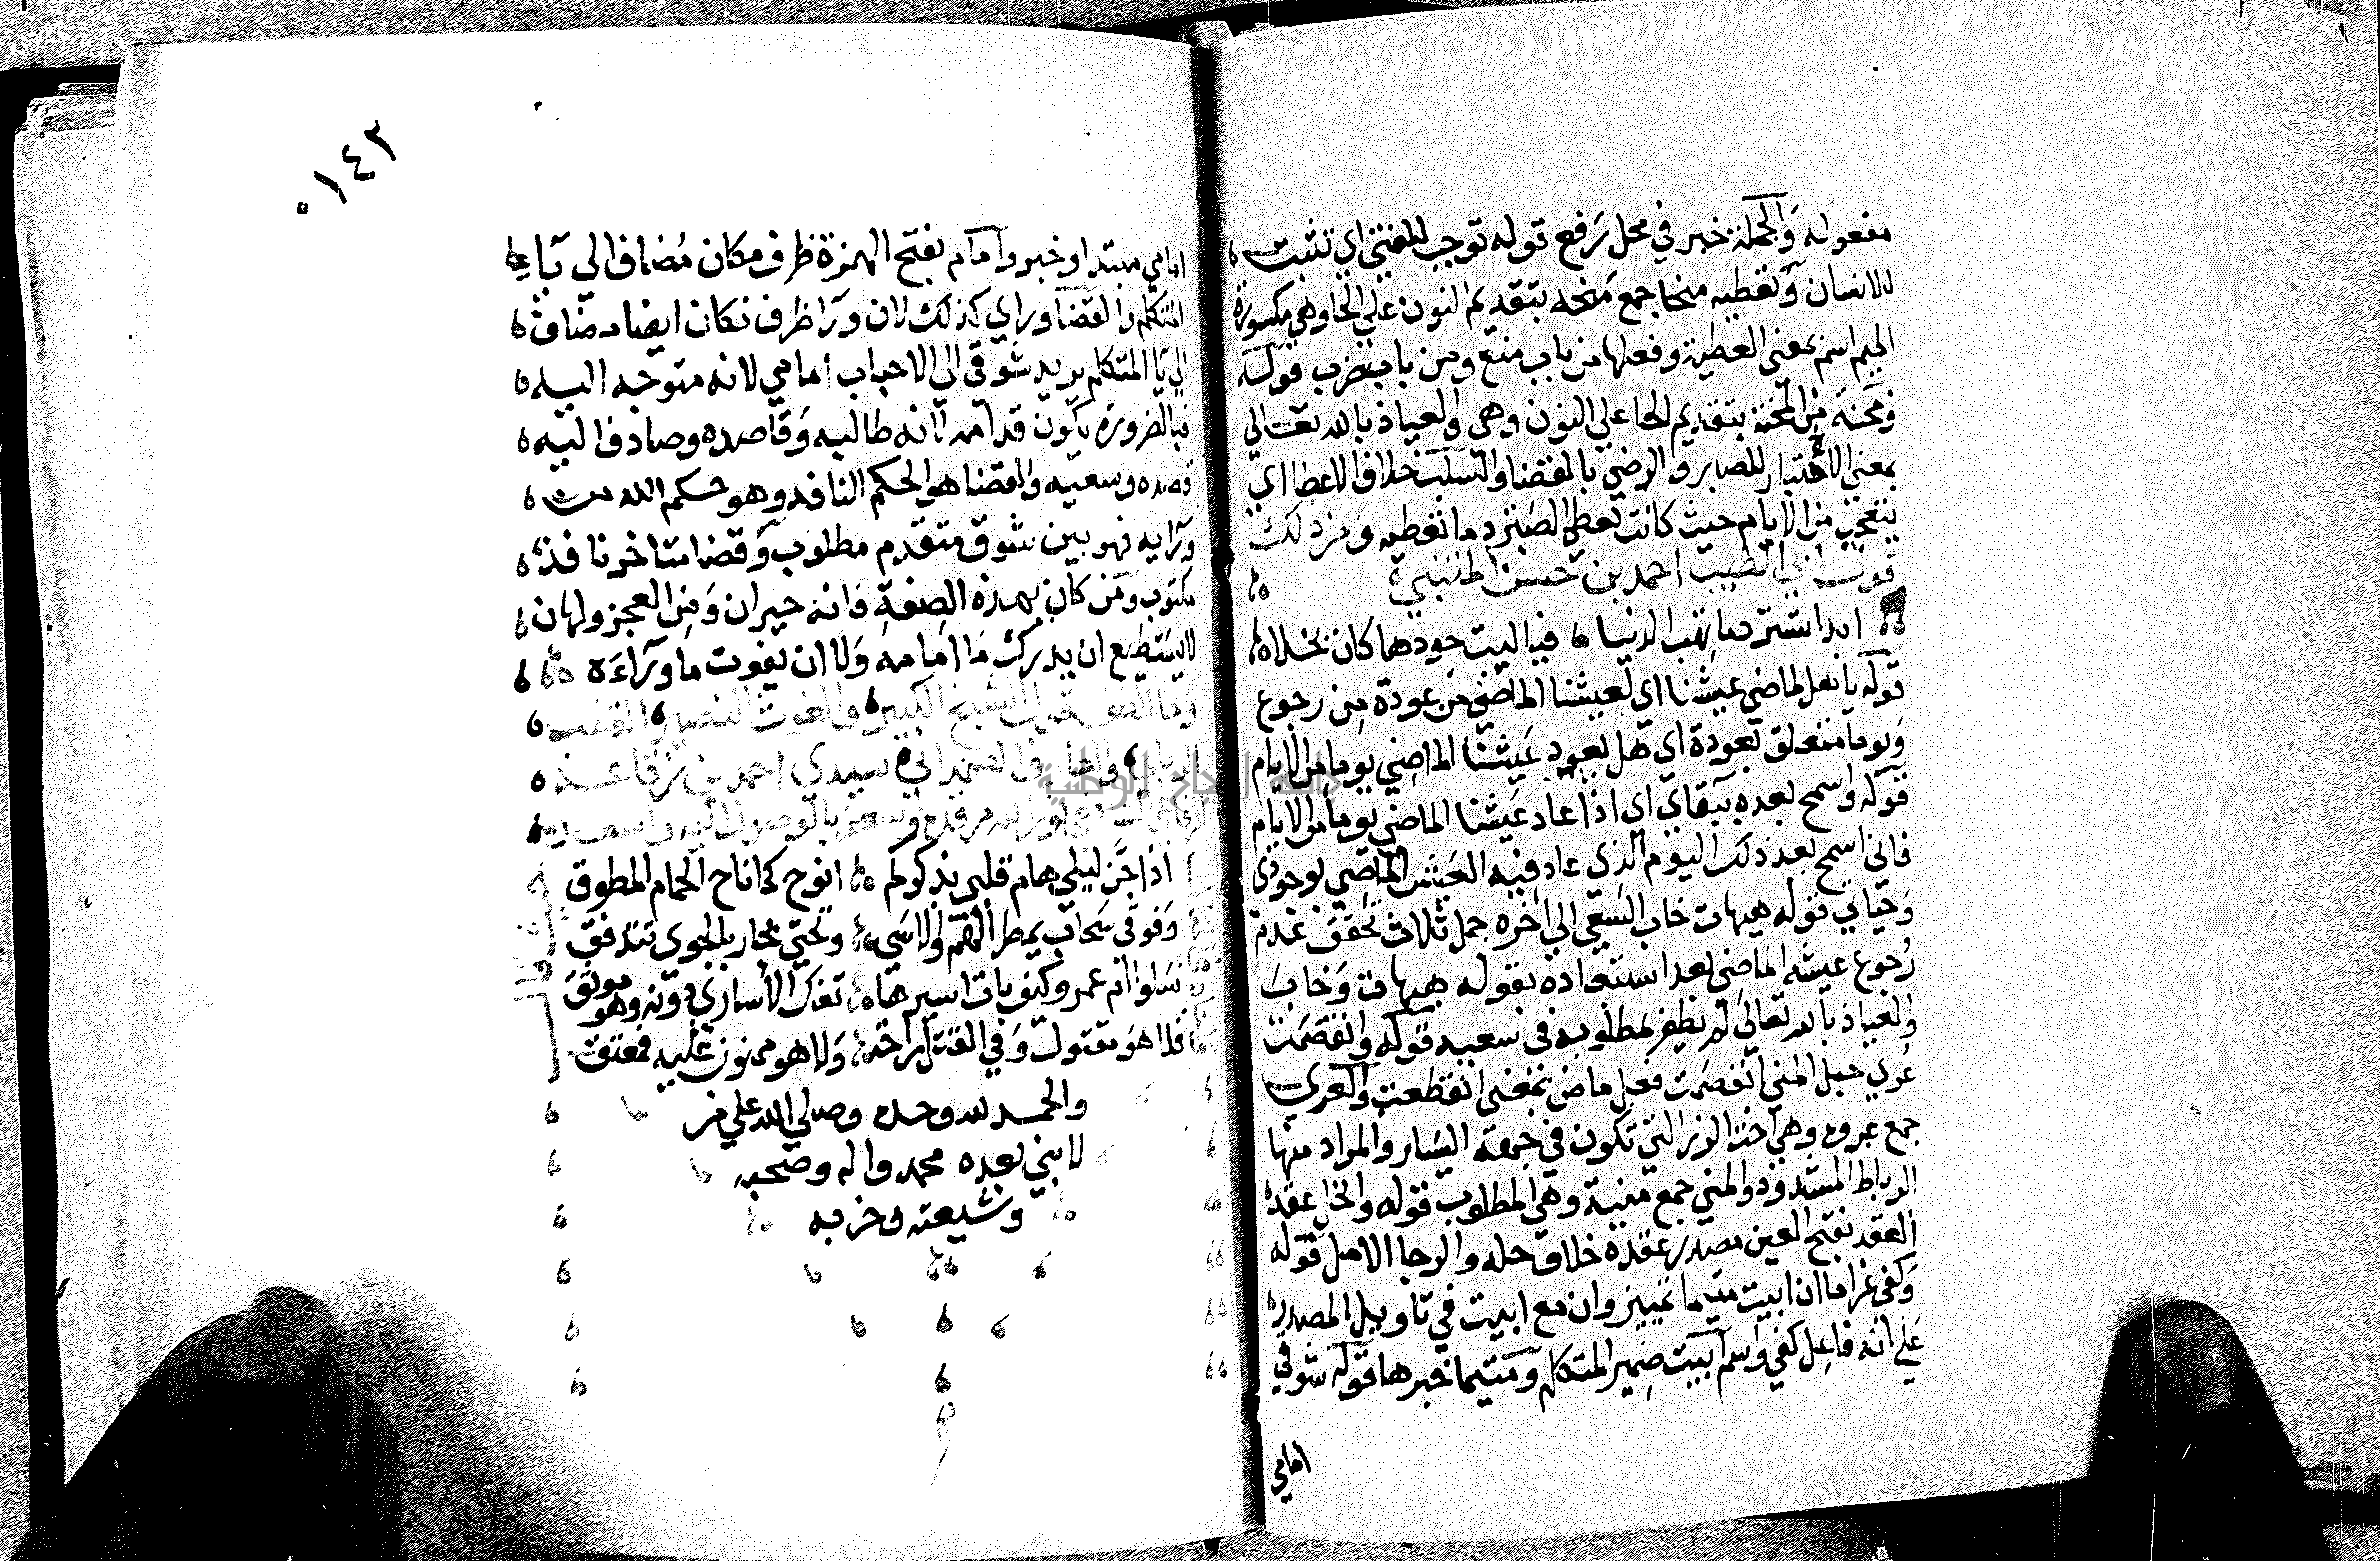 مفعوله والجملة خبر في محل رفع قوله توجب للفتى اي تثبت
للانسان وتعطيه منحا جمع منحه بتقديم النون على الحا وهي مكسورة
الميم اسم بمعنى العطية وفعلها من باب منع ومن باب ضرب قوله
ومحنة من المحنة بتقديم الحا على النون وهي والعياذ بالله تعالى
بمعنى الاختبار للصابر والرضي بالقضا والسلب خلاف الاعطا اي
يتعجب من الايام حيث كانت تعطي تسترد ما تعطيه ومن ذلك
قول ابي الطيب احمد بن حسن المتنبي
ابدا تسترد ما تهب الدنيا فيا ليت جودها كان بخلا
قوله يا هل لماضي عيشنا اي لعيشنا الماضي من عودة من رجوع
ويوما متعلق بعودة اي هل يعود عيشنا الماضي يوما من الايام
قوله واسمح بعده ببقاي اي اذا عاد عيشنا الماضي يوما من الايام
فاني اسمح بعد ذلك اليوم الذي عاد فيه العيش الماضي بوجودي
وحياتي قوله هيهات خاب السعي الى اخره جمل ثلاث تحقق عدم
رجوع عيشه الماضي بعد استعاده بقوله هيهات وخاب
والعياذ بالله تعالى لم يظفر بمطلوبه في سعيه قوله وانفصمت
عرى حبل المنى انفصمت فعل ماض بمعنى انقطعت والعرى
جمع عروه وهي اخت الزر التي تكون في جهة اليسار والمراد منها
الرباط المشدود والمنى جمع منية وهي المطلوب قوله وانحل عقد
العقد بفتح العين مصدر عقده خلاف حله والرجا الامل قوله
وكفى غراما ان ابيت متيما تمييز وان مع ابيت في تاويل المصدر
على انه فاعل كفى واسم ابيت ضمير المتكلم ومتيما خبرها قوله شوقي
امامي
١٤٣
امامي مبتدا وخبر وامام بفتح الهمزة ظرف مكان مضاف الى ياء
المتكلم والقضا وراي كذلك لان ورا ظرف مكان ايضا مضاف
الى يا المتكلم يريد شوقي الى الاحباب امامي لانه متوجه اليه
فبالضرورة يكون قدامه لانه طالبه وقاصده وصادف اليه
قصده وسعيه والقضا هو الحكم النافذ وهو حكم الله
ورايه فهو بين شوق متقدم مطلوب وقضا متاخر نافذ
مكتوب ومن كان بهذه الصفة فانه حيران ومن العجز ولهان
لا يستطيع ان يدرك ما امامه ولا ان يفوت ما وراءه
وما الطف قول الشيخ الكبير والغوث الشهير القطب
الرباني والعارف الصمداني سيدي احمد بن رفاعة
الرفاعي نور الله مرقده بالوصول اليه
اذا جن ليلي هام قلبي بذكركم انوح كما ناح الحمام المطوق
وفوقي سحاب يمطر الهم والاسى وتحتي بحار بالجوى تتدفق
سلوا ام عمرو كيف بات اسيرها تفك الاسارى دونه وهو موثق
فلا هو مقتول وفي القتل راحة ولا هو ممنون عليه فمعتق
والحمد لله وحده وصلى الله على من
لا نبي بعده محمد واله وصحبه
وشيعته وحزبه